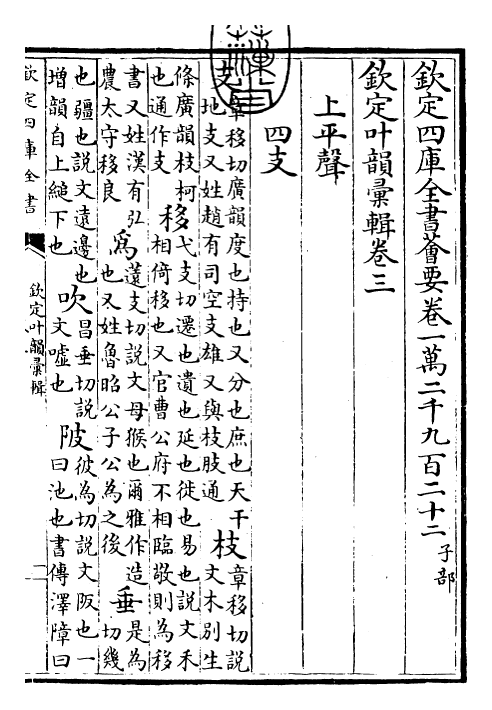 欽定四庫全書薈要卷一萬二千九百二十二 子部
欽定叶韻彙輯卷三
上平聲
四支
支 章移切廣韻度也持也又分也庶也天干地支又姓趙有司空支雄又與枝肢通 枝 章移切說文木別生
條廣韻枝柯也通作支 移 弋支切遷也遺也延也徙也易也說文禾相倚移也又官曹公府不相臨敬則為移
書又姓漢有弘農太守移良 為 薳支切說文母猴也爾雅作造也又姓魯昭公子公為之後 垂 是為切幾
也疆也說文遠邊也增韻自上縋下也 吹 昌垂切說文噓也 陂 彼為切說文阪也一曰池也書傳澤障曰
欽定四庫全書
欽定叶韻彙輯